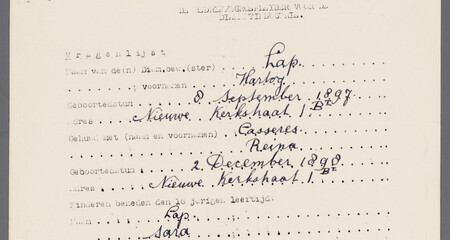 Vragenlijst
Naam van de(n) Diam.bew.(ster) Lap
" ; voornamen Hartog
Geboortedatum 8 September 1897
adres Nieuwe Kerkstraat 1 Bt
Gehuwd met (naam en voornamen) Casseres
Reina
Geboortedatum 2 December 1898
adres Nieuwe Kerkstraat 1 Bt
Kinderen beneden den 16 jarigen leeftijd:
Naam Lap
Sara